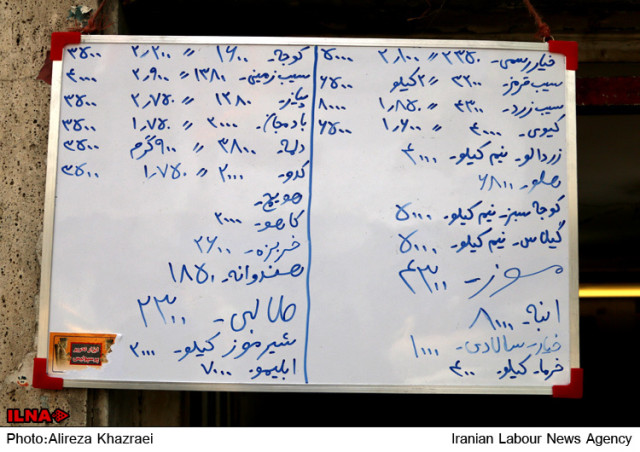 خیار رسمی- ۲۳۵۰ // ۲٫۱۰۰ ۵۰۰۰
سیب قرمز- ۳۲۰۰ // ۲ کیلو ۶۵۰۰
سیب زرد- ۴۳۰۰ // ۱٫۸۵۰ ۸۰۰۰
کیوی- ۴۰۰۰ ۱٫۶۰۰ ۶۵۰۰
زردالو- نیم کیلو- ۴۰۰۰
هلو- ۶۸۰۰
گوجه سبز- نیم کیلو- ۵۰۰۰
گیلاس- نیم کیلو- ۵۰۰۰
موز- ۴۳۰۰
انبه- ۸۰۰۰
خیار- سالادی- ۱۰۰۰
خرما- کیلو- ۴۰۰۰
گوجه- ۱۶۰۰ // ۲٫۲۰۰ ۳۵۰۰
سیب زمینی- ۱۳۸۰ // ۲٫۹۰۰ ۴۰۰۰
پیاز- ۱۲۸۰ // ۲٫۷۵۰ ۳۵۰۰
بادمجان- ۲۰۰۰ // ۱٫۷۵۰ ۳۵۰۰
دلمه- ۳۸۰۰ // ۹۰۰ گرم ۳۵۰۰
کدو- ۲۰۰۰ // ۱٫۷۵۰ ۳۵۰۰
هویج-
کاهو- ۲۰۰۰
خربزه- ۲۶۰۰
هندوانه- ۱۸۵۰
طالبی- ۲۳۰۰
شیر موز کیلو- ۲۰۰۰
ابلیمو- ۷۰۰۰
ILNA
Photo:Alireza Khazraei
Iranian Labour News Agency